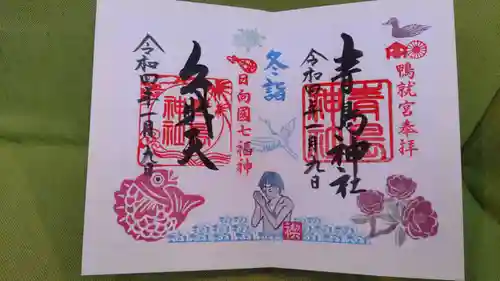 鴨就宮奉拝
青島神社
青島神社
令和四年一月九日
冬詣
日向國七福神
弁財天
令和四年一月九日
禊